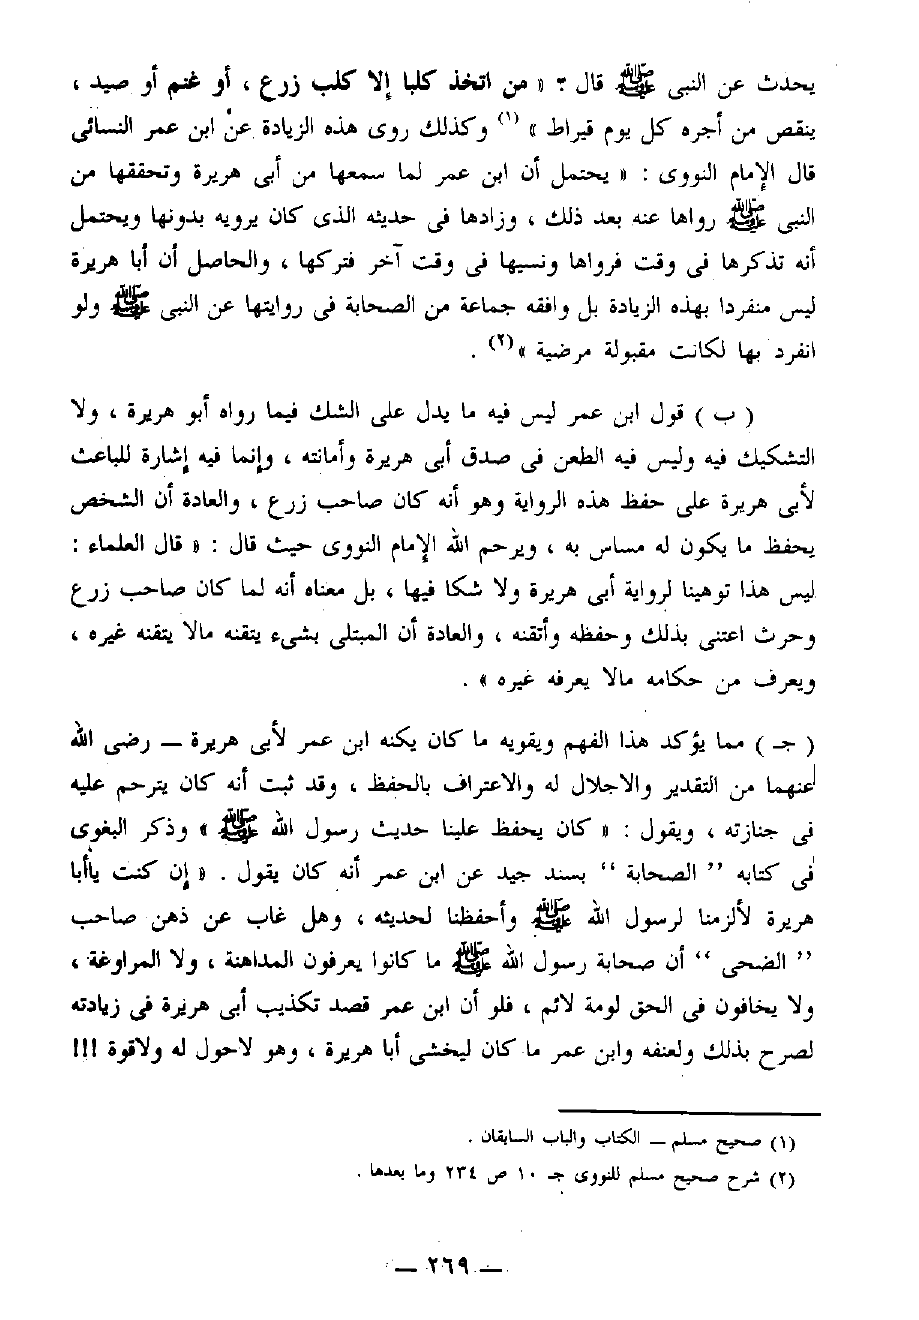 يحدث عن النبى ﷺ قال : « من اتخذ كلبا إلا كلب زرع ، أو غنم أو صيد ،
ينقص من أجره كل يوم قيراط » (١) وكذلك روى هذه الزيادة عن ابن عمر النسائى
قال الإمام النووى : « يحتمل أن ابن عمر لما سمعها من أبى هريرة وتحققها من
النبى ﷺ رواها عنه بعد ذلك ، وزادها فى حديثه الذى كان يرويه بدونها ويحتمل
أنه تذكرها فى وقت فرواها ونسيها فى وقت آخر فتركها ، والحاصل أن أبا هريرة
ليس منفردا بهذه الزيادة بل وافقه جماعة من الصحابة فى روايتها عن النبى ﷺ ولو
انفرد بها لكانت مقبولة مرضية » (٢) .
( ب ) قول ابن عمر ليس فيه ما يدل على الشك فيما رواه أبو هريرة ، ولا
التشكيك فيه وليس فيه الطعن فى صدق أبى هريرة وأمانته ، وإنما فيه إشارة للباعث
لأبى هريرة على حفظ هذه الرواية وهو أنه كان صاحب زرع ، والعادة أن الشخص
يحفظ ما يكون له مساس به ، ويرحم الله الإمام النووى حيث قال : « قال العلماء :
ليس هذا توهينا لرواية أبى هريرة ولا شكا فيها ، بل معناه أنه لما كان صاحب زرع
وحرث اعتنى بذلك وحفظه وأتقنه ، والعادة أن المبتلى بشىء يتقنه مالا يتقنه غيره ،
ويعرف من حكامه مالا يعرفه غيره » .
( جـ ) مما يؤكد هذا الفهم ويقويه ما كان يكنه ابن عمر لأبى هريرة ــ رضى الله
عنهما من التقدير والاجلال له والاعتراف بالحفظ ، وقد ثبت أنه كان يترحم عليه
فى جنازته ، ويقول : « كان يحفظ علينا حديث رسول الله ﷺ » وذكر البغوى
فى كتابه " الصحابة " بسند جيد عن ابن عمر أنه كان يقول . « إن كنت ياأبا
هريرة لألزمنا لرسول الله ﷺ وأحفظنا لحديثه ، وهل غاب عن ذهن صاحب
" الضحى " أن صحابة رسول الله ﷺ ما كانوا يعرفون المداهنة ، ولا المراوغة ،
ولا يخافون فى الحق لومة لائم ، فلو أن ابن عمر قصد تكذيب أبى هريرة فى زيادته
لصرح بذلك ولعنفه وابن عمر ما كان ليخشى أبا هريرة ، وهو لاحول له ولاقوة !!!
(١) صحيح مسلم ــ الكتاب والباب السابقان .
(٢) شرح صحيح مسلم للنووى جـ ١٠ ص ٢٣٤ وما بعدها .
ــ ٢٦٩ ــ